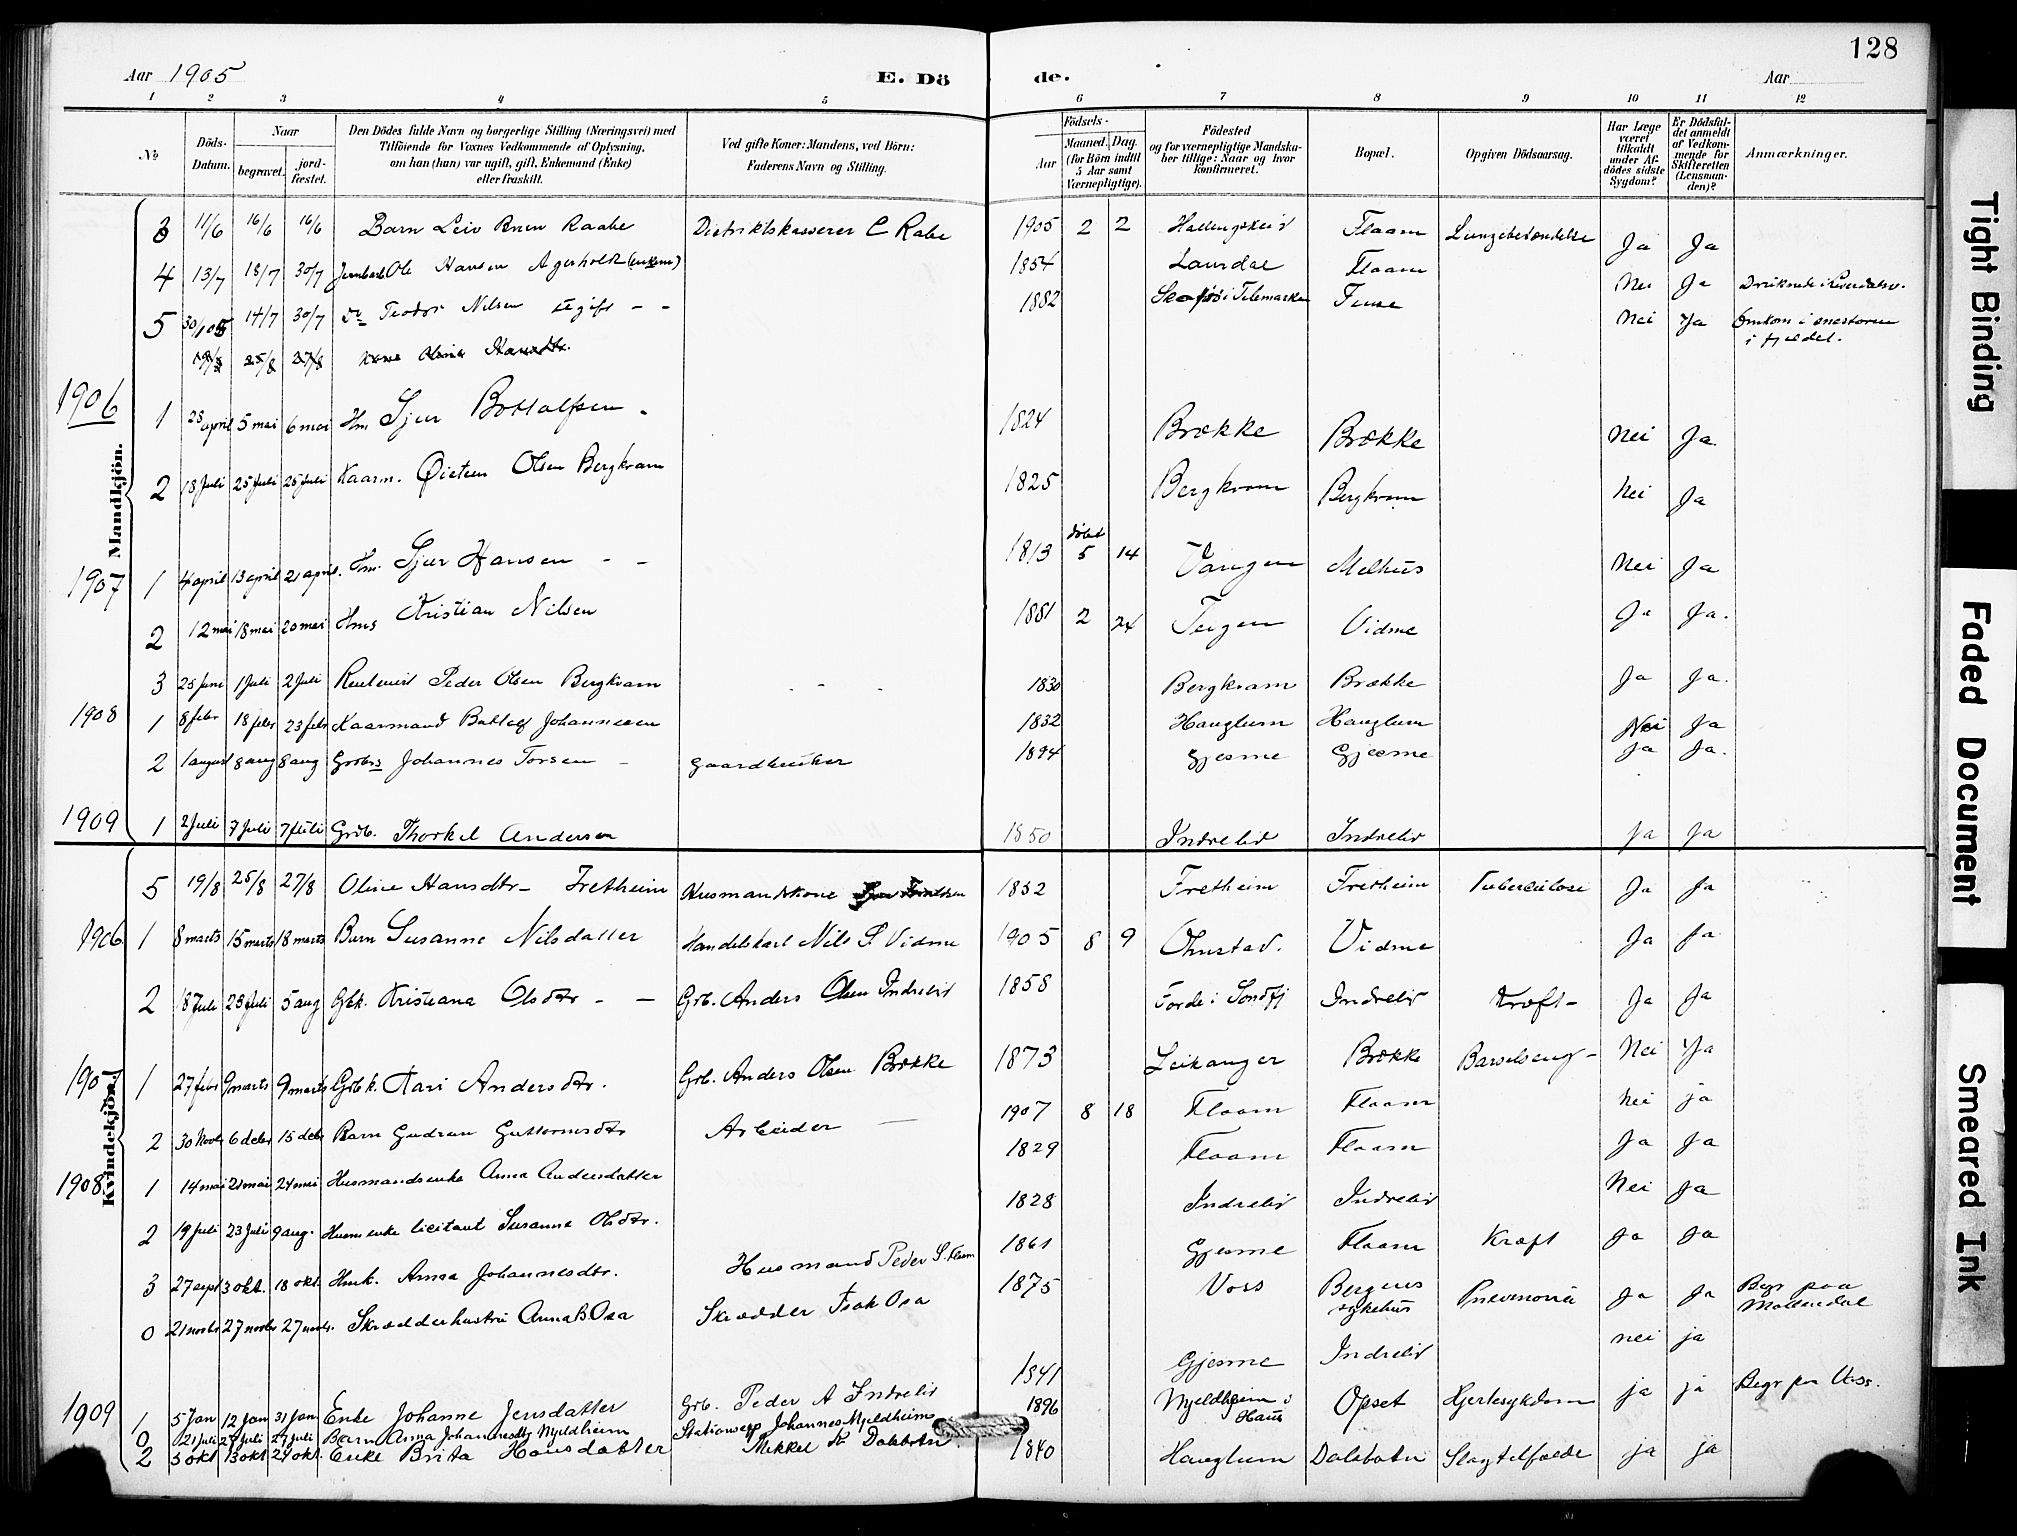 128
Aar 1905 E. Dö de. Aar
1 2 3 4 5 6 7 8 9 10 11 12
No Döds-Datum. Naar begravet. jordfæstet. Den Dödes fulde Navn og borgerlige Stilling (Næringsvei) med Tilföiende for Voxnes Vedkommende af Oplysning, om han (hun) var ugift, gift, Enkemand (Enke) eller fraskilt. Ved gifte Koner: Mandens, ved Börn: Faderens Navn og Stilling. Födsels- Aar Maaned. Dag. (for Börn indtil 5 Aar samt Værnepligtige). Födested og for værnepligtige Mandskaber tillige: Naar og hvor konfirmeret. Bopæl. Opgiven Dödsaarsag. Har Læge været tilkaldt under Afdödes sidste Sygdom? Er Dödsfaldet anmeldt af Vedkommende for Skifteretten (Lensmanden)? Anmærkninger.
Mandkjön.
3 11/6 16/6 16/6 Barn Leiv Raabe Distriktskasserer C Rabe 1905 2 2 Flaam Lungebetændelse Ja Ja
4 13/7 18/7 30/7 Ole Hansen Agerholt 1854 Laurdal Flaam Nei Ja Druknede i
5 30/10 14/7 30/7 Do Teodor Nilsen ugift - - 1882 i Telemarken Finse Nei Ja Omkom i snestorm i fjeldet.
19/8 25/8 27/8 Kone Olina Hansdtr.
1906 1 28 april 5 mai 6 mai Hm Sjur Bottolfsen - 1824 Brække Brække Nei Ja.
2 18 Juli 25 Juli 25 Juli Kaarm. Øistein Olsen Bergkvam 1825 Bergkvam Bergkvam Nei Ja
1907 1 4 april 13 april 21 april. Hm. Sjur Hansen - - 1813 døbt 5 14 Vangen Melhus Nei Ja
2 12 mai 18 mai 20 mai Hms Kristian Nilsen 1881 2 24 Tergen Vidme Ja Ja.
3 25 Juni 1 Juli 2 Juli Peder Olsen Bergkvam 1830 Bergkvam Brække Ja Ja.
1908 1 8 febr 18 febr 23 febr Kaarmand Bottolf Johannesen 1832 Hauglum Hauglum Nei Ja
2 1 august 8 aug 8 aug Grbrs Johannes Torsen - gaardbruker 1894 Gjesme Gjesme Ja Ja.
1909 1 2 Juli 7 Juli 7 Juli Grdb. Thorkel Andersen 1850 Indrelid Indrelid Ja Ja
Kvindekjön.
5 19/8 25/8 27/8 Oline Hansdtr - Fretheim Husmandskone 1852 Fretheim Fretheim Tuberculose Ja Ja
1906 1 8 marts 15 marts 18 marts Barn Susanne Nilsdatter Handelskarl Nils S. Vidme 1905 8 9 Onstad. Vidme Ja Ja
2 18 Juli 23 Juli 5 aug Gbk. Kristiana Olsdtr - - Grb. Anders Olsen Indrelid 1858 Førde i Søndfj Indrelid Kræft - Ja Ja
1907 1 27 febr 9 marts 9 marts Grbk. Kari Andersdtr. Grb. Anders Olsen Brække 1873 Leikanger Brække Barselseng - Nei Ja
2 30 Novbr 6 debr 15 debr Barn Gudrun Guttormsdtr Arbeider 1907 8 18 Flaam Flaam Nei ja
1908 1 14 mai 21 mai 24 mai Husmandsenke Anna Andersdatter 1829 Flaam Flaam Ja Ja
2 19 Juli 23 Juli 9 aug. Husmenke Susanna Olsdtr. 1828 Indrelid Indrelid Nei Ja
3 27 sept 3 okt. 18 okt. Hmk. Anna Johannesdtr. Husmand Peder S. Flaam 1861 Gjesme Flaam Kræft Ja Ja
0 21 novbr 27 novbr 27 novbr. Skrædderhustru Anna B. Osa Skrædder Isak Osa 1875 Voss Bergens sykehus Pnevmonia Ja Ja Begr paa Møllendal
1909 1 5 Jan 12 Jan 31 Jan Enke Johanne Jensdatter Grb. Peder A Indrelid 1841 Gjesme Indrelid nei ja
0 21 Juli 27 Juli 27 Juli Barn Anna Johannesdtr Myeldheim Johannes Myeldheim 1896 Myeldheim i Haus Opset Hjertesykdom ja ja Begr paa Voss.
2 5 okt 13 okt 24 okt. Enke Brita Hansdatter Mikkel Dalsbotn. 1840 Hauglum Dalsbotn Slagtilfælde ja ja
Tight Binding
Faded Document
Smeared Ink